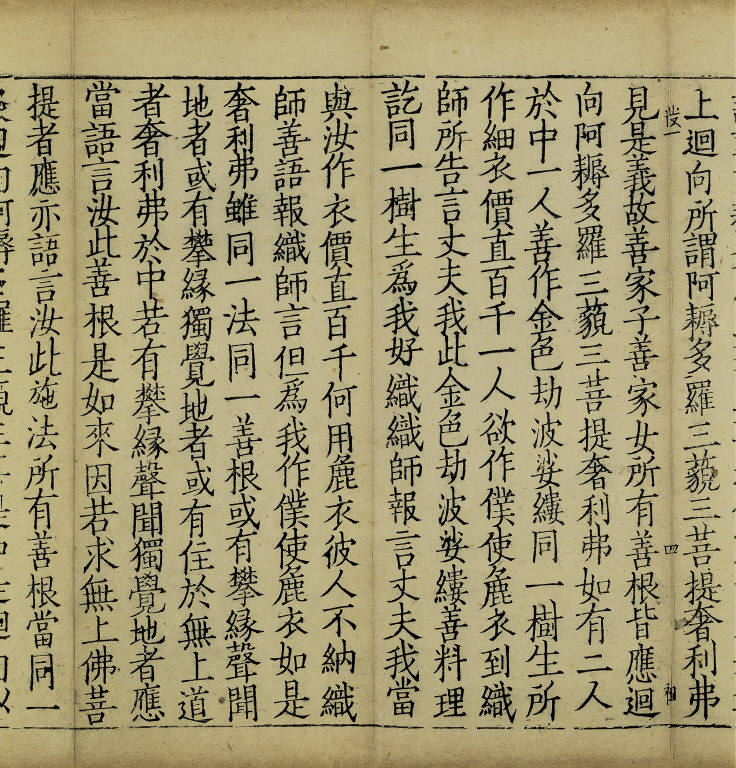 上迴向所謂阿耨多羅三藐三菩提奢利弗
四
見是義故善家子善家女所有善根皆應迴
向阿耨多羅三藐三菩提奢利弗如有二人
於中一人善作金色劫波娑縷同一樹生所
作細衣價直百千一人欲作僕使麁衣到織
師所告言丈夫我此金色劫波娑縷善料理
訖同一樹生爲我好織織師報言丈夫我當
與汝作衣價直百千何用麁衣彼人不納織
師善語報織師言但爲我作僕使麁衣如是
奢利弗雖同一法同一善根或有攀縁聲聞
地者或有攀縁獨覺地者或有住於無上道
者奢利弗於中若有攀縁聲聞獨覺地者應
當語言汝此善根是如來因若求無上佛菩
提者應亦語言汝此施法所有善根當同一